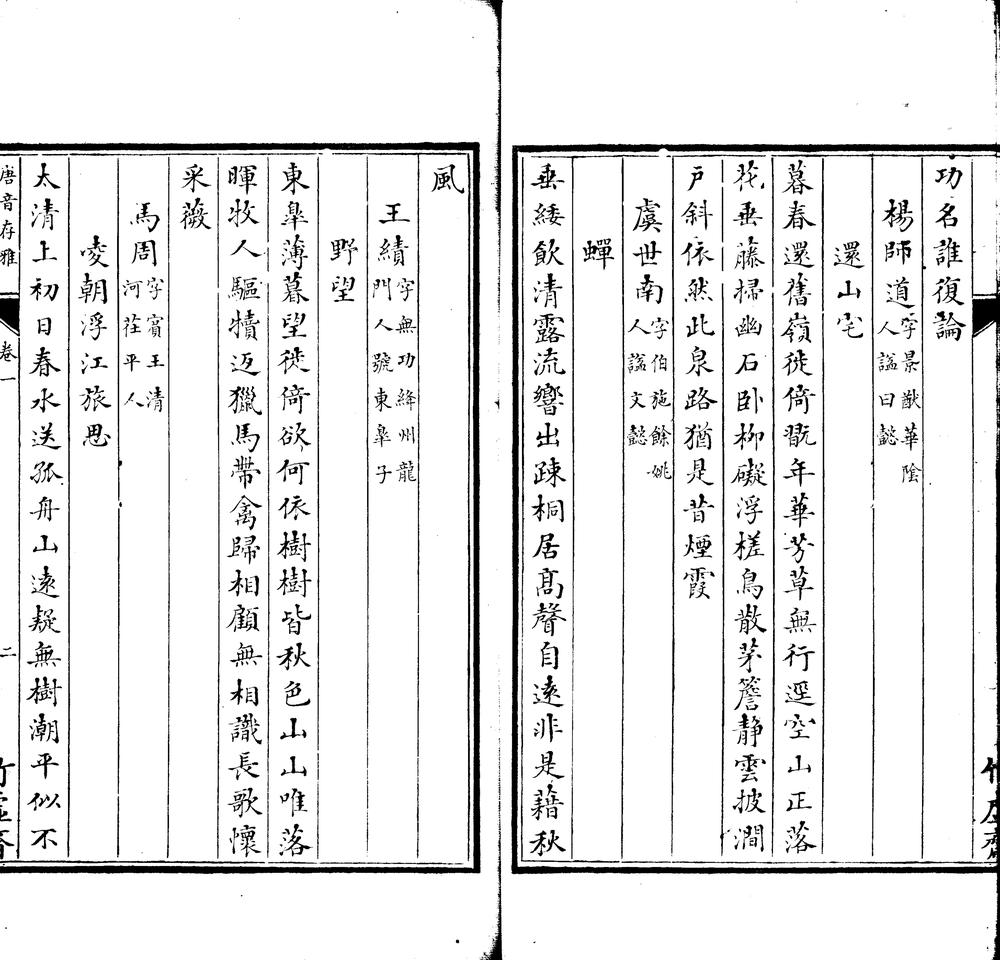 功名誰復論
楊師道字景猷華陰人謚曰懿
還山宅
暮春還舊嶺徙倚翫年華芳草無行逕空山正落
花垂藤掃幽石卧柳礙浮槎鳥散茅簷静雲披澗
戸斜依然此泉路猶是昔煙霞
虞世南字伯施餘姚人謚文懿
蟬
垂緌飲清露流響出疎桐居髙聲自逺非是藉秋
風
王績字無功絳州龍門人號東皋子
野望
東皋薄暮望徙倚欲何依樹樹皆秋色山山唯落
暉牧人驅犢返獵馬帶禽歸相顧無相識長歌懷
采薇
馬周字賓王清河茌平人
凌朝浮江旅思
太清上初日春水送孤舟山逺疑無樹潮平似不
唐音存雅
卷一
二